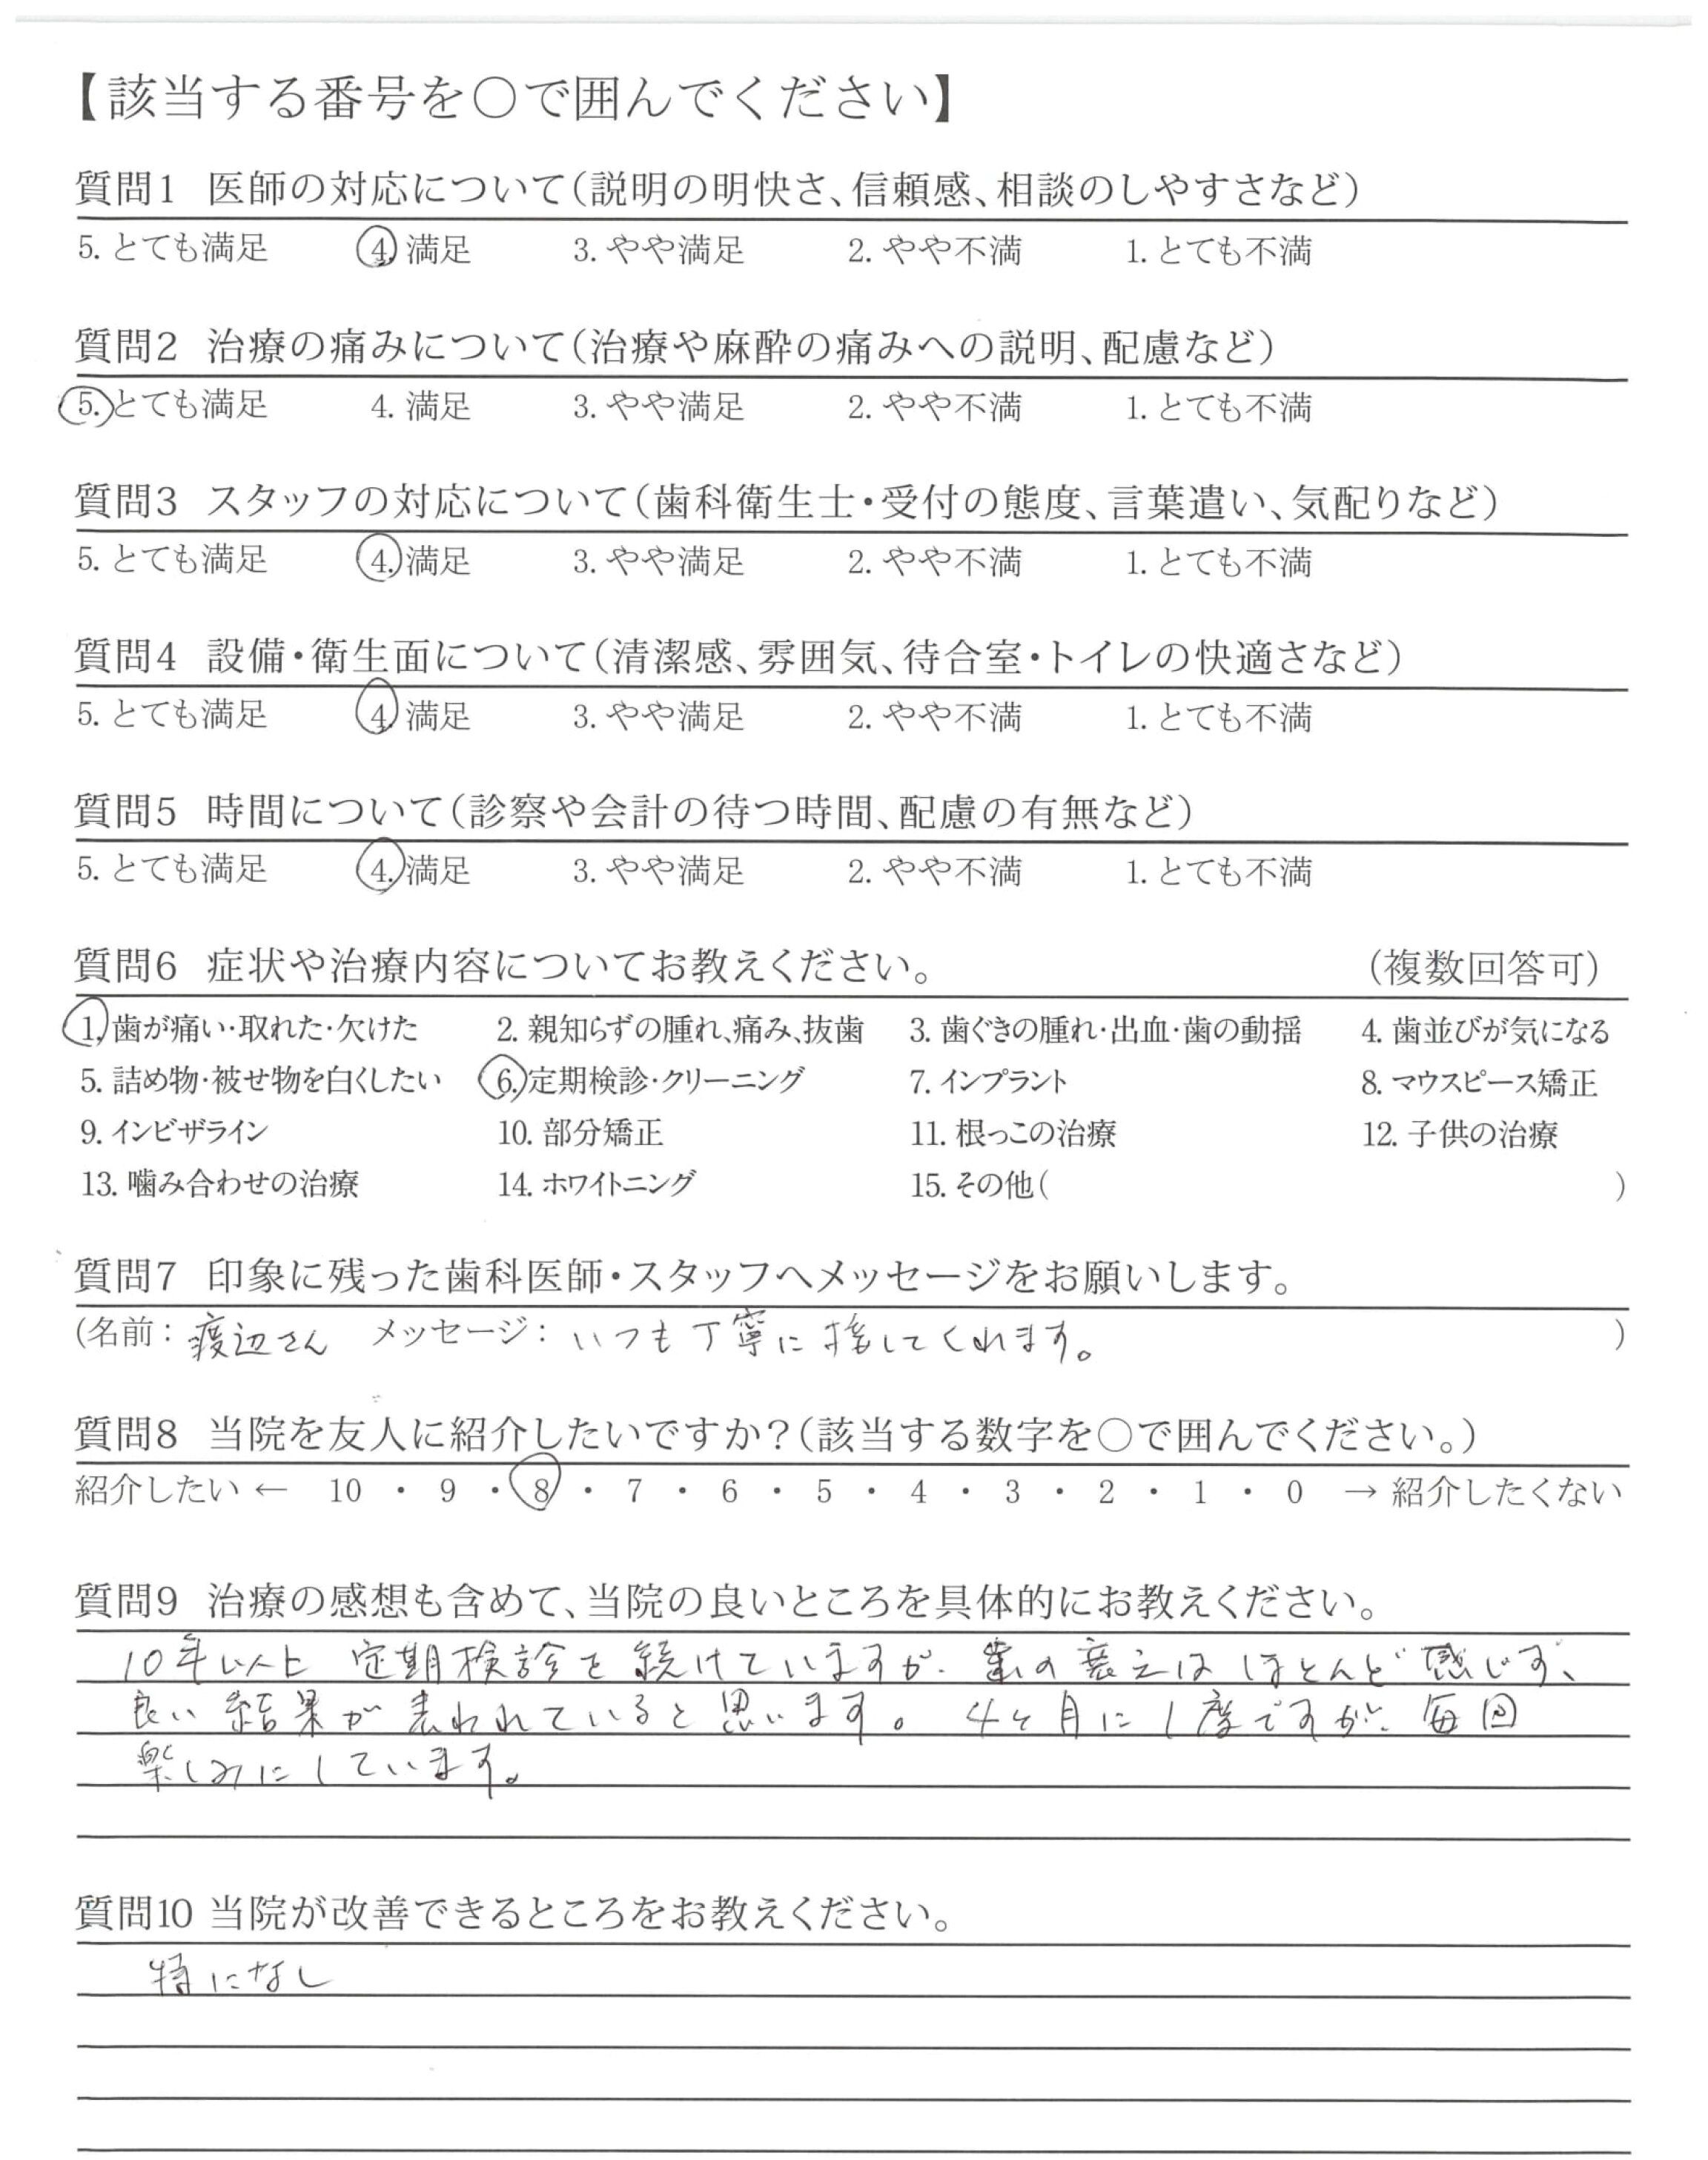 【該当する番号を○で囲んでください】
質問1 医師の対応について(説明の明快さ、信頼感、相談のしやすさなど)
5. とても満足 4. 満足 3. やや満足 2. やや不満 1. とても不満
質問2 治療の痛みについて(治療や麻酔の痛みへの説明、配慮など)
5. とても満足 4. 満足 3. やや満足 2. やや不満 1. とても不満
質問3 スタッフの対応について(歯科衛生士・受付の態度、言葉遣い、気配りなど)
5. とても満足 4. 満足 3. やや満足 2. やや不満 1. とても不満
質問4 設備・衛生面について(清潔感、雰囲気、待合室・トイレの快適さなど)
5. とても満足 4. 満足 3. やや満足 2. やや不満 1. とても不満
質問5 時間について(診察や会計の待つ時間、配慮の有無など)
5. とても満足 4. 満足 3. やや満足 2. やや不満 1. とても不満
質問6 症状や治療内容についてお教えください。 (複数回答可)
1. 歯が痛い・取れた・欠けた 2. 親知らずの腫れ、痛み、抜歯 3. 歯ぐきの腫れ・出血・歯の動揺 4. 歯並びが気になる
5. 詰め物・被せ物を白くしたい 6. 定期検診・クリーニング 7. インプラント 8. マウスピース矯正
9. インビザライン 10. 部分矯正 11. 根っこの治療 12. 子供の治療
13. 噛み合わせの治療 14. ホワイトニング 15. その他( )
質問7 印象に残った歯科医師・スタッフへメッセージをお願いします。
(名前: 渡辺さん メッセージ: いつも丁寧に接してくれます。 )
質問8 当院を友人に紹介したいですか?(該当する数字を○で囲んでください。)
紹介したい ← 10 ・ 9 ・ 8 ・ 7 ・ 6 ・ 5 ・ 4 ・ 3 ・ 2 ・ 1 ・ 0 → 紹介したくない
質問9 治療の感想も含めて、当院の良いところを具体的にお教えください。
10年以上 定期検診を続けていますが、歯の衰えはほとんど感じず、
良い結果が表われていると思います。 4ヶ月に1度ですが、毎回
楽しみにしています。
質問10 当院が改善できるところをお教えください。
特になし